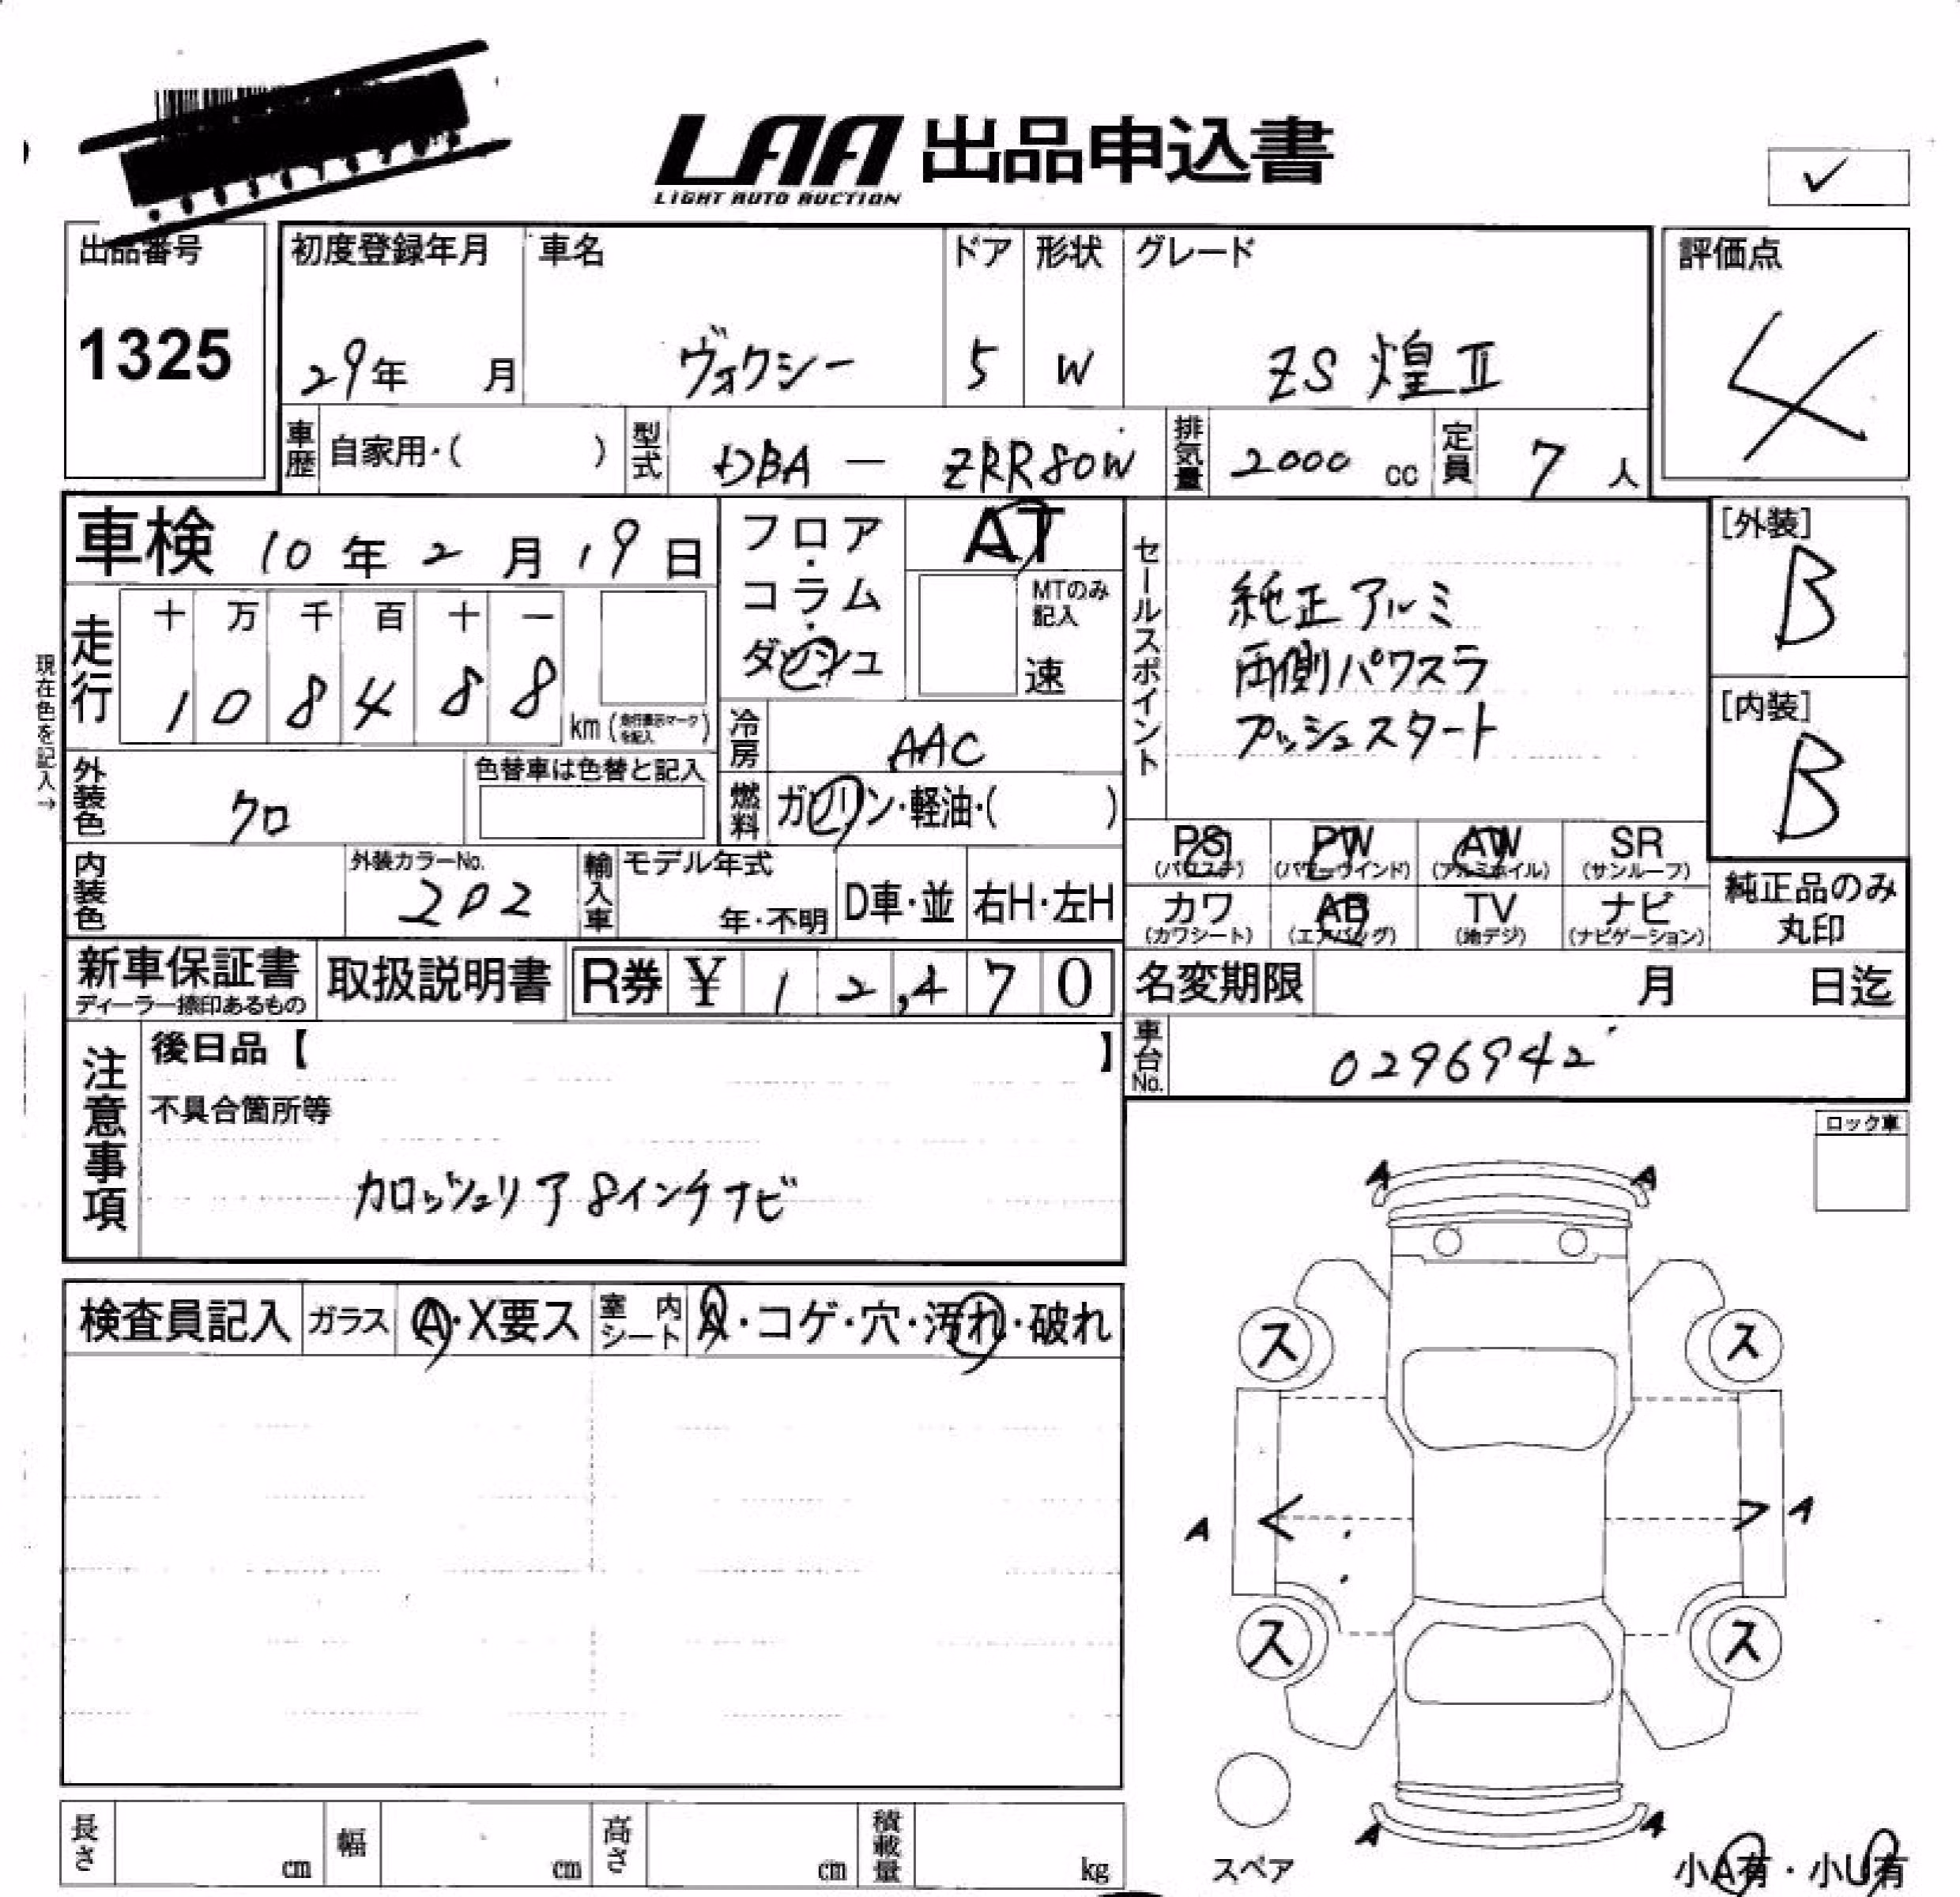 LAA 出品申込書
LIGHT AUTO AUCTION
✓
出品番号
1325
初度登録年月
29年 月
車名
ヴォクシー
ドア
5
形状
W
グレード
ZS 煌Ⅱ
評価点
4
車歴 自家用・( )
型式 DBA － ZRR80W
排気量 2000 cc
定員 7 人
車検 10年2月19日
走行
十 万 千 百 十 一
1 0 8 4 8 8
km (走行表示マークを記入)
現在色を記入→
フロア・
コラム・
ダッシュ
AT
MTのみ記入
速
冷房 AAC
燃料 ガソリン・軽油・( )
セールスポイント
純正アルミ
両側パワスラ
プッシュスタート
[外装]
B
[内装]
B
外装色 クロ
色替車は色替と記入
内装色
外装カラーNo.
202
輸入車
モデル年式
年・不明
D車・並
右H・左H
PS (パワステ)
PW (パワーウインド)
AW (アルミホイル)
SR (サンルーフ)
カワ (カワシート)
AB (エアバッグ)
TV (地デジ)
ナビ (ナビゲーション)
純正品のみ
丸印
新車保証書
ディーラー捺印あるもの
取扱説明書
R券 ¥ 12,470
名変期限 月 日迄
車台No. 0296942
注意事項
後日品【 】
不具合箇所等
カロッツェリア 8インチナビ
ロック車
検査員記入
ガラス A・X要ス
室内シート A・コゲ・穴・汚れ・破れ
A A
ス ス
A < > A
ス ス
A A
スペア
小A有・小U有
長さ cm
幅 cm
高さ cm
積載量 kg